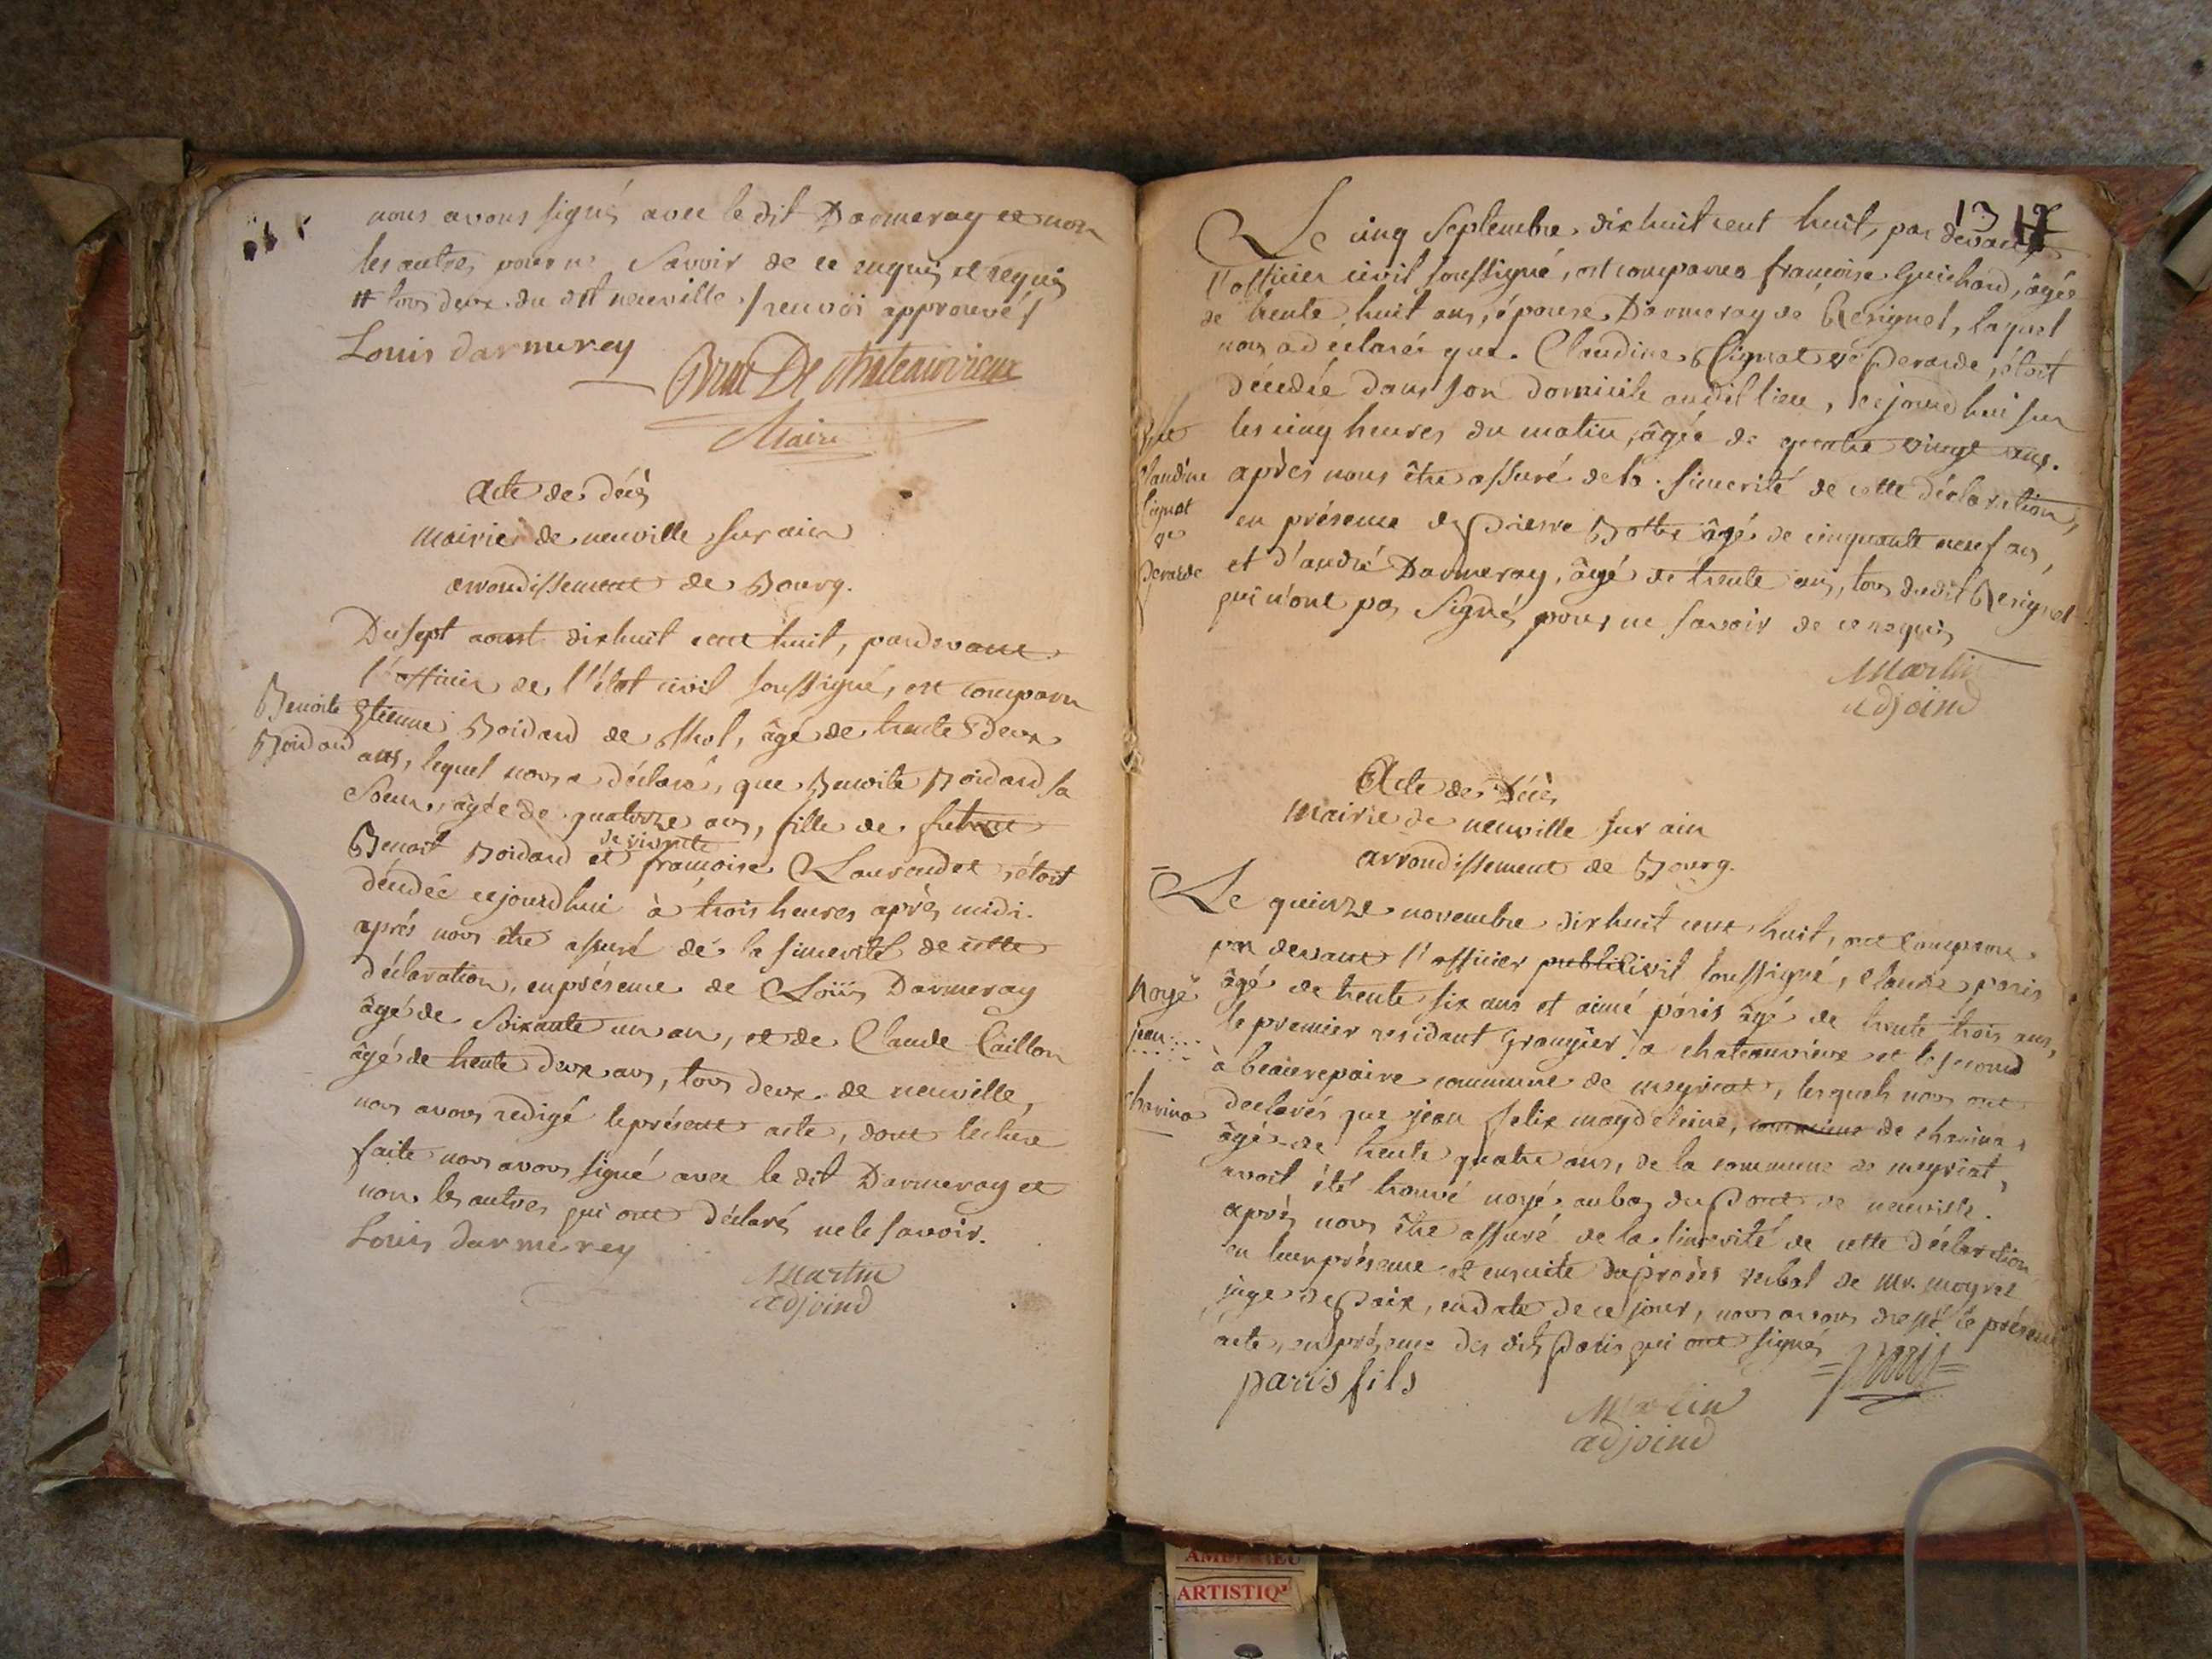 nous avons signés avec le dit Darmeray et non
les autres pour ne savoir de ce enquis et requis
# tous deux du dit neuville / renvoi approuvé /
Louis darmerey
Brut De Chateauvieux
Maire
Acte de décès
Mairie de neuville sur ain
arrondissement de Bourg.
Du sept aoust dix huit cent huit, pardevant
l'officier de l'état civil soussigné, est comparu
Benoite
Boidard
Etienne Boidard de Thol, âgé de trente deux
ans, lequel nous a déclaré, que Benoite Boidard sa
soeur, âgée de quatorze ans, fille de
Benoit Boidard et de vivante françoise Laurendet, étoit
décédée cejourdhui à trois heures après midi.
après nous être assuré de la sincerité de cette
déclaration, en présence de Loüis Darmeray
âgé de soixante un an, et de Claude Caillon
âgé de trente deux ans, tous deux de neuville,
nous avons redigé le présent acte, dont lecture
faite nous avons signé avec le dit Darmeray et
non les autres qui ont déclaré ne le savoir.
Louis darmerey
Martin
adjoind
13
Le cinq Septembre dix huit cent huit, par devant
l'officier civil soussigné, est comparue francoise Guichard, âgée
de trente huit ans, épouse Darmeray de Resignel, laquel
nous a déclarés que Claudine Cignat ve Perarde, étoit
décédée dans son domicile audit lieu, cejourdhui sur
les cinq heures du matin, âgée de quatre vingt ans.
Claudine
Cignat
ve
Perarde
après nous être assuré de la sincerité de cette déclaration,
en présence de Pierre Botte âgé de cinquante neuf ans,
et d'andré Darmeray, âgé de trente ans, tous dudit Resignel
qui n'ont pas signés pour ne savoir de ce requis
Martin
adjoind
Acte de Décès
Mairie de neuville sur ain
arrondissement de Bourg.
Le quinze novembre dix huit cent huit, ont comparu
par devant l'officier public civil soussigné, Claude paris
Noyé
jean
Chavina
âgé de trente six ans et aimé paris âgé de trente trois ans,
le premier residant Grangier à chateauvieux et le second
à beaurepaire commune de meyriat, lesquels nous ont
declarés que jean felix magdeleine, commune de chavina,
âgé de trente quatre ans, de la commune de meyriat,
avoit été trouvé noyé au bas du Pont de neuville.
après nous être assuré de la sincerité de cette déclaration
en leur présence et ensuite du procès verbal de Mr. moyret
juge de Paix, en date de ce jour, nous avons dressé le présent
acte, en présence des dits Paris qui ont signés
paris fils
Martin
adjoind